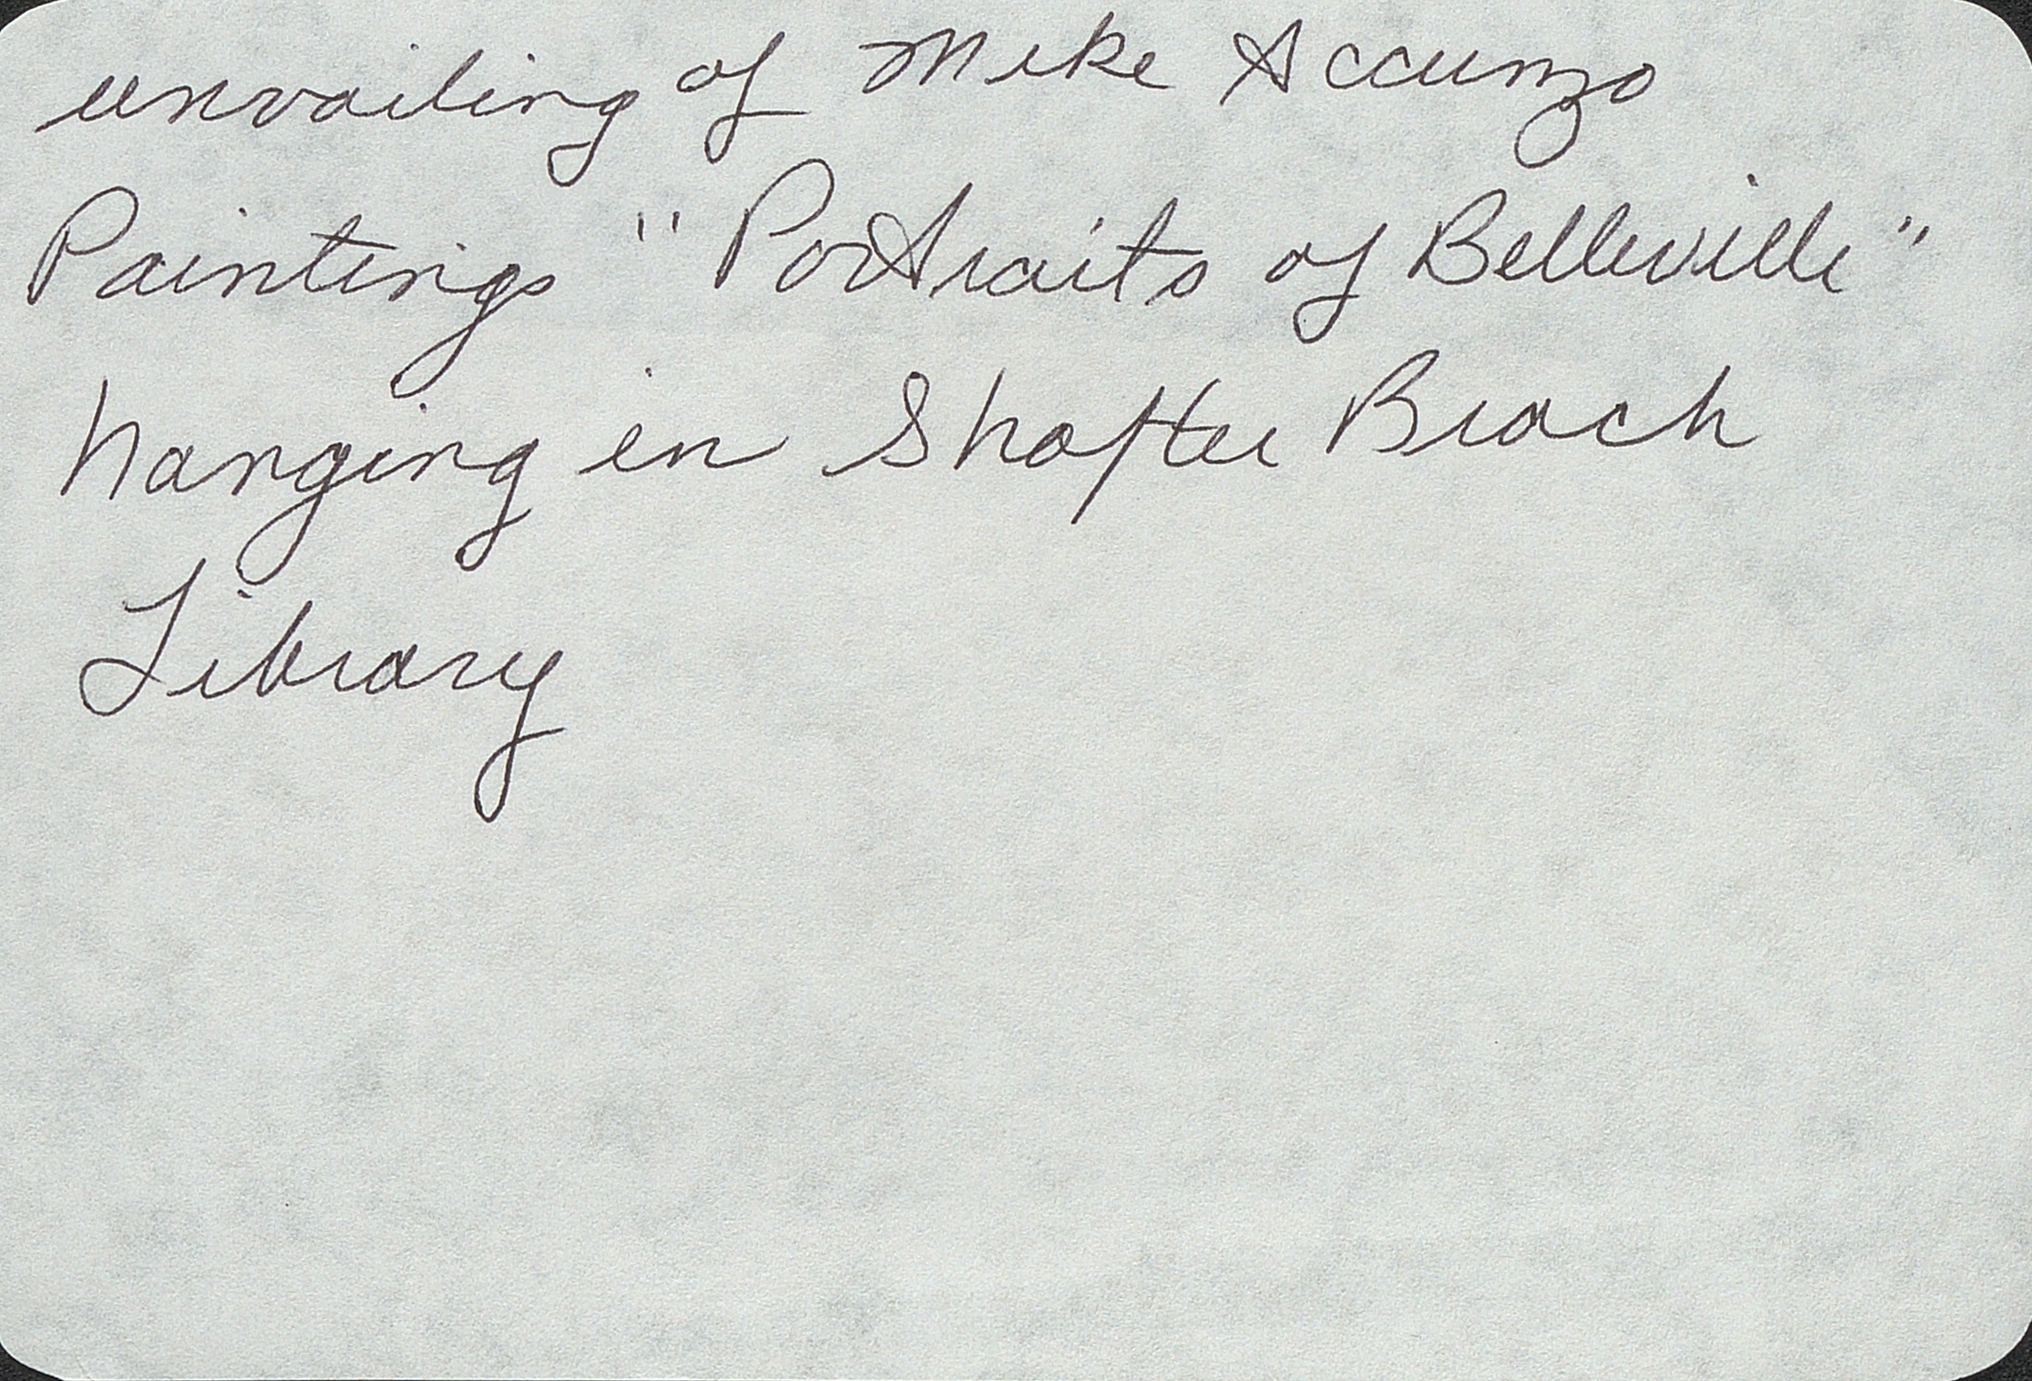 unvailing of Mike Accunzo
Paintings "Portraits of Belleville"
hanging in Shafter Brach
Library